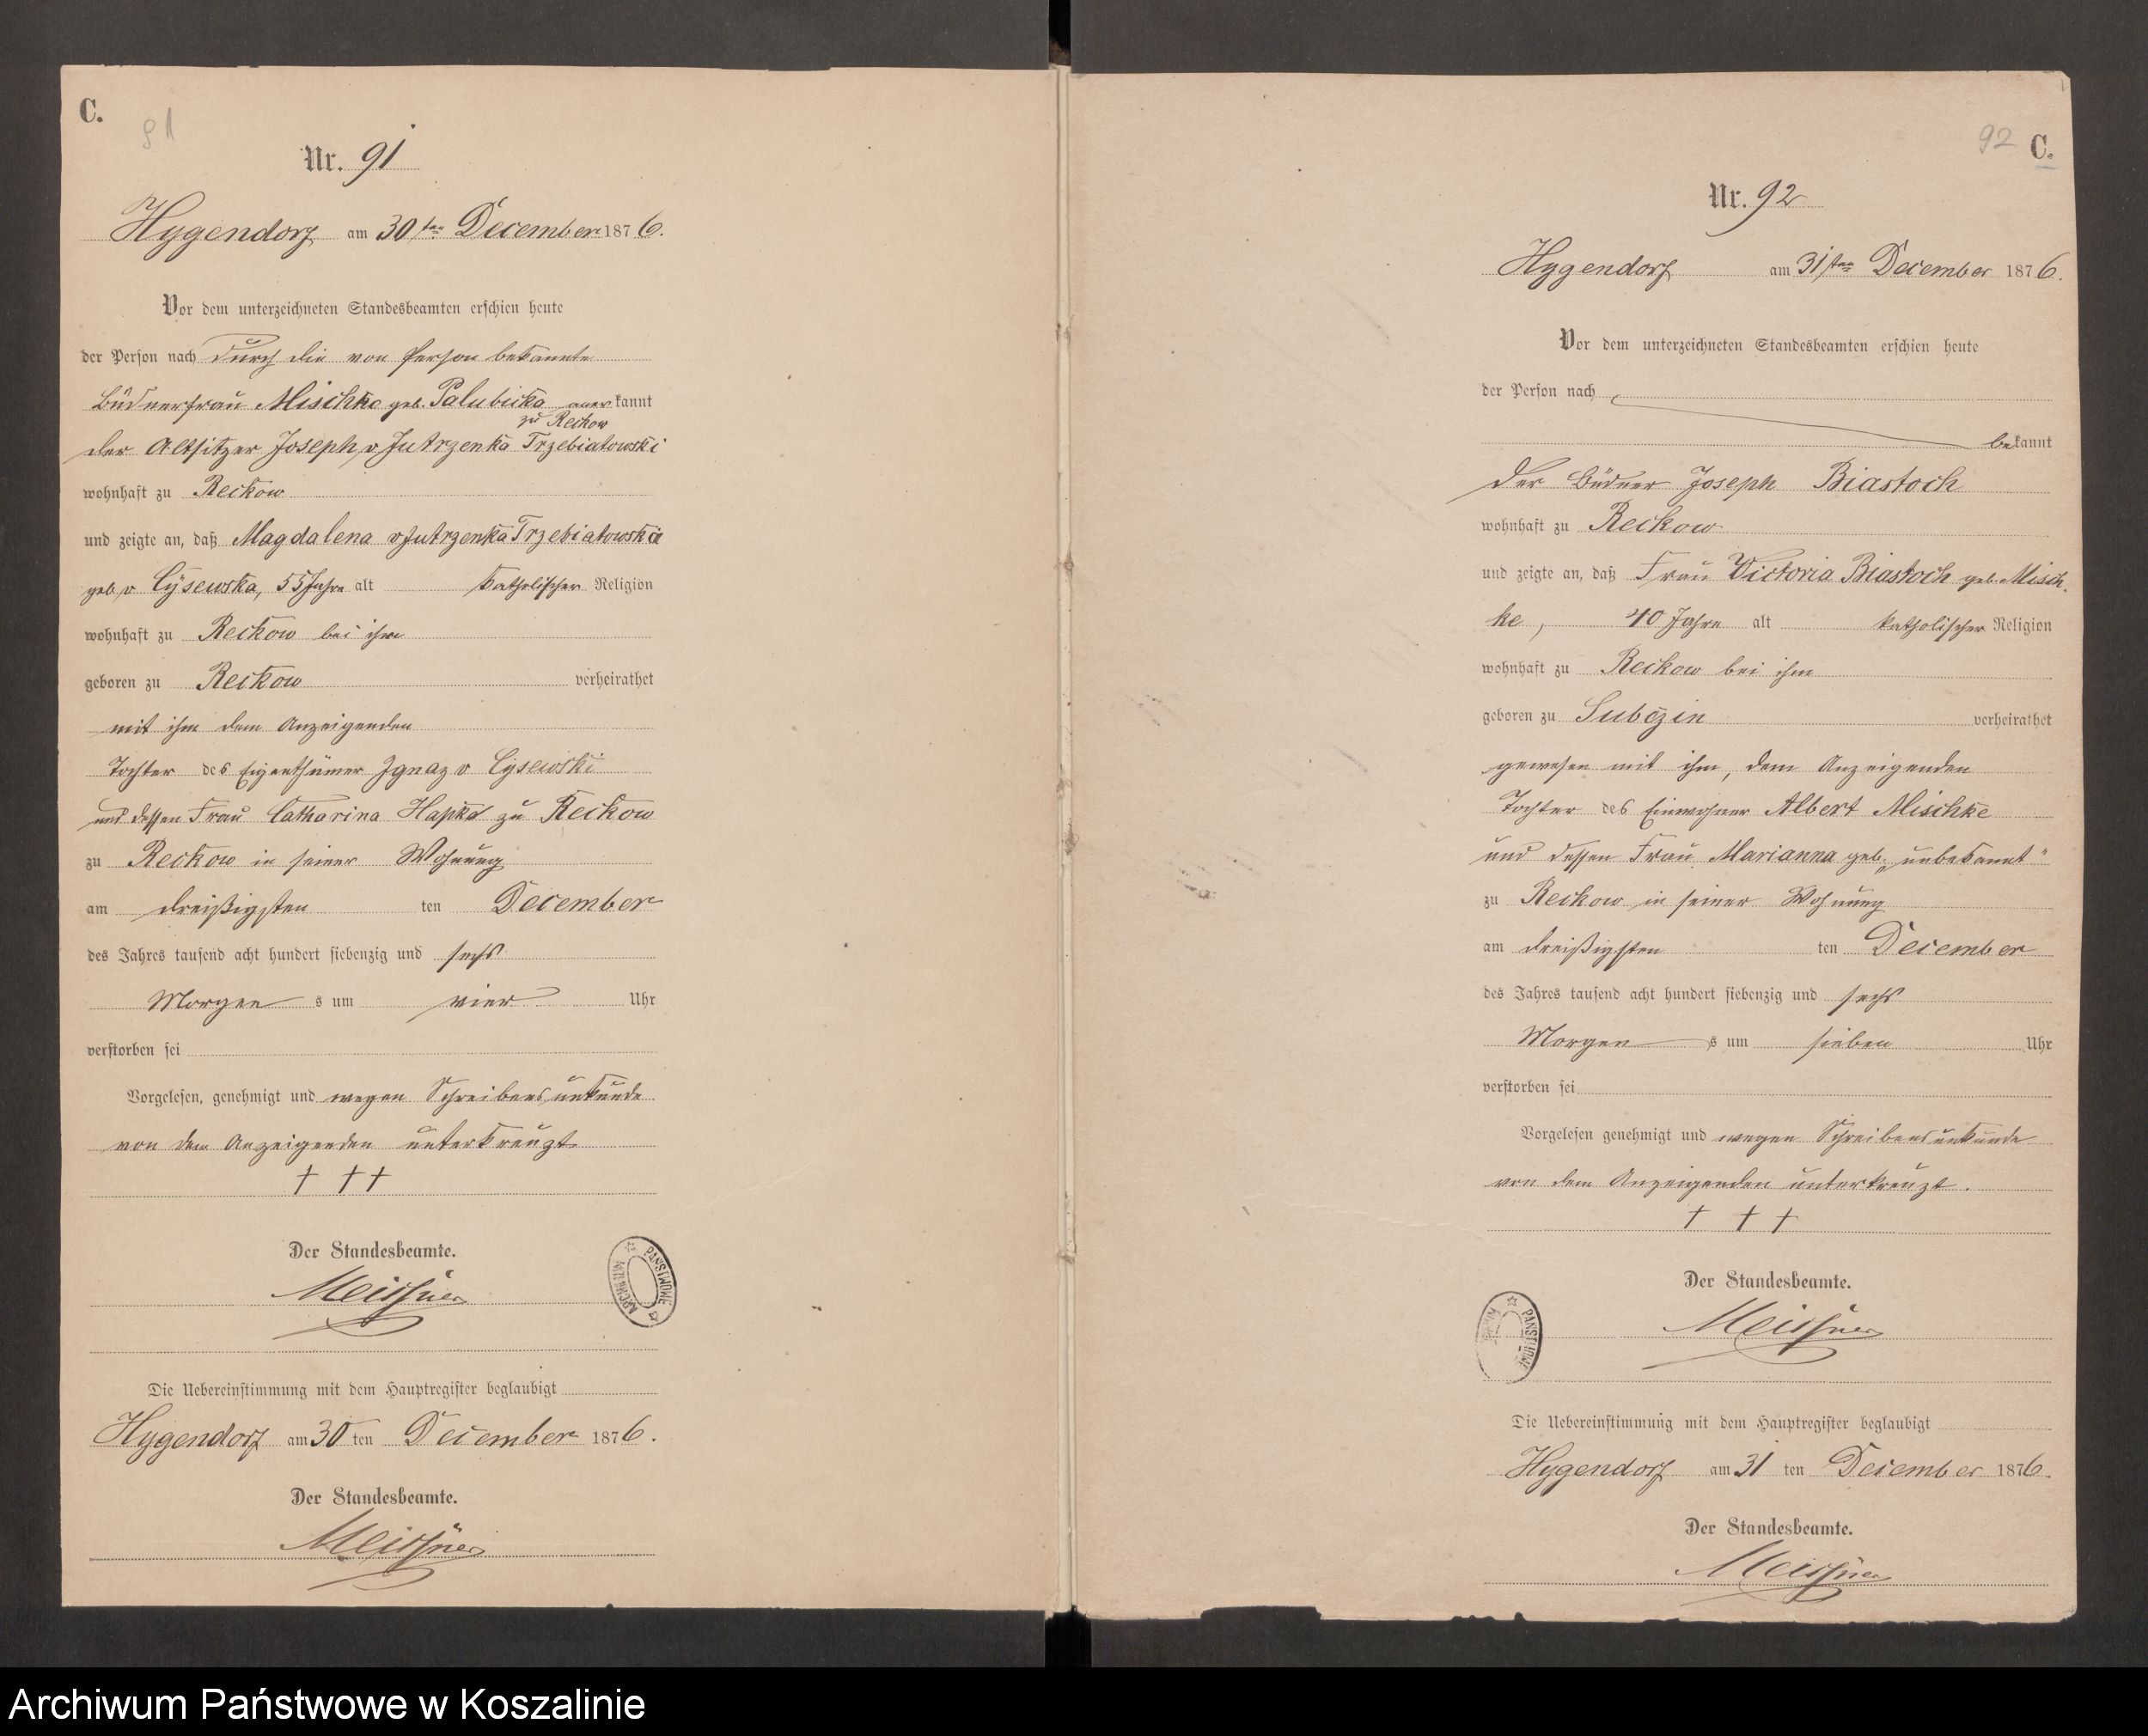 C.
91
Nr. 91
Hygendorf am 30ten December 1876.
Vor dem unterzeichneten Standesbeamten erschien heute
der Person nach durch die von Person bekannte
Büdnerfrau Mischke geb. Palubicka anerkannt
zu Reckow
der Altsitzer Joseph v Jutrzenka Trzebiatowski
wohnhaft zu Reckow
und zeigte an, daß Magdalena v Jutrzenka Trzebiatowska
geb v Cysewska, 55 Jahre alt katholischer Religion
wohnhaft zu Reckow bei ihm
geboren zu Reckow verheirathet
mit ihm dem Anzeigenden
Tochter des Eigenthümer Ignaz v Cysewski
und dessen Frau Catharina Hapka zu Reckow
zu Reckow in seiner Wohnung
am dreißigsten ten December
des Jahres tausend acht hundert siebenzig und sechs
Morgens um vier Uhr
verstorben sei
Vorgelesen, genehmigt und wegen Schreibensunkunde
von dem Anzeigenden unterkreuzt
† † †
Der Standesbeamte.
Meissner
ARCHIWUM PAŃSTWOWE
Die Uebereinstimmung mit dem Hauptregister beglaubigt
Hygendorf am 30 ten December 1876.
Der Standesbeamte.
Meissner
92 C.
Nr. 92
Hygendorf am 31ten December 1876.
Vor dem unterzeichneten Standesbeamten erschien heute
der Person nach
bekannt
der Büdner Joseph Biastoch
wohnhaft zu Reckow
und zeigte an, daß Frau Victoria Biastoch geb. Misch-
ke, 40 Jahre alt katholischer Religion
wohnhaft zu Reckow bei ihm
geboren zu Subczin verheirathet
gewesen mit ihm, dem Anzeigenden
Tochter des Einwohner Albert Mischke
und dessen Frau Marianna geb. „unbekannt"
zu Reckow in seiner Wohnung
am dreißigsten ten December
des Jahres tausend acht hundert siebenzig und sechs
Morgens um sieben Uhr
verstorben sei
Vorgelesen genehmigt und wegen Schreibensunkunde
von dem Anzeigenden unterkreuzt.
† † †
Der Standesbeamte.
Meissner
PAŃSTWOWE
Die Uebereinstimmung mit dem Hauptregister beglaubigt
Hygendorf am 31 ten December 1876.
Der Standesbeamte.
Meissner
Archiwum Państwowe w Koszalinie